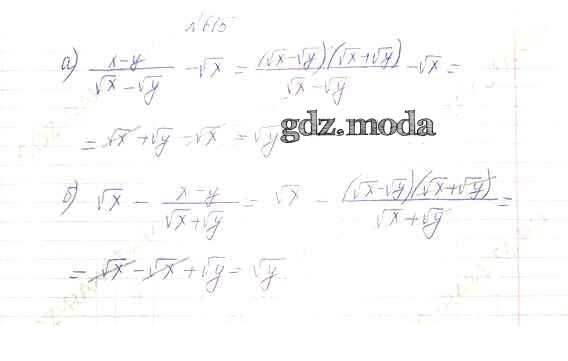 №615
а) \frac{x-y}{\sqrt{x}-\sqrt{y}} - \sqrt{x} = \frac{(\sqrt{x}-\sqrt{y})(\sqrt{x}+\sqrt{y})}{\sqrt{x}-\sqrt{y}} - \sqrt{x} =
= \sqrt{x} + \sqrt{y} - \sqrt{x} = \sqrt{y}
gdz.moda
б) \sqrt{x} - \frac{x-y}{\sqrt{x}+\sqrt{y}} = \sqrt{x} - \frac{(\sqrt{x}-\sqrt{y})(\sqrt{x}+\sqrt{y})}{\sqrt{x}+\sqrt{y}} =
= \sqrt{x} - \sqrt{x} + \sqrt{y} = \sqrt{y}